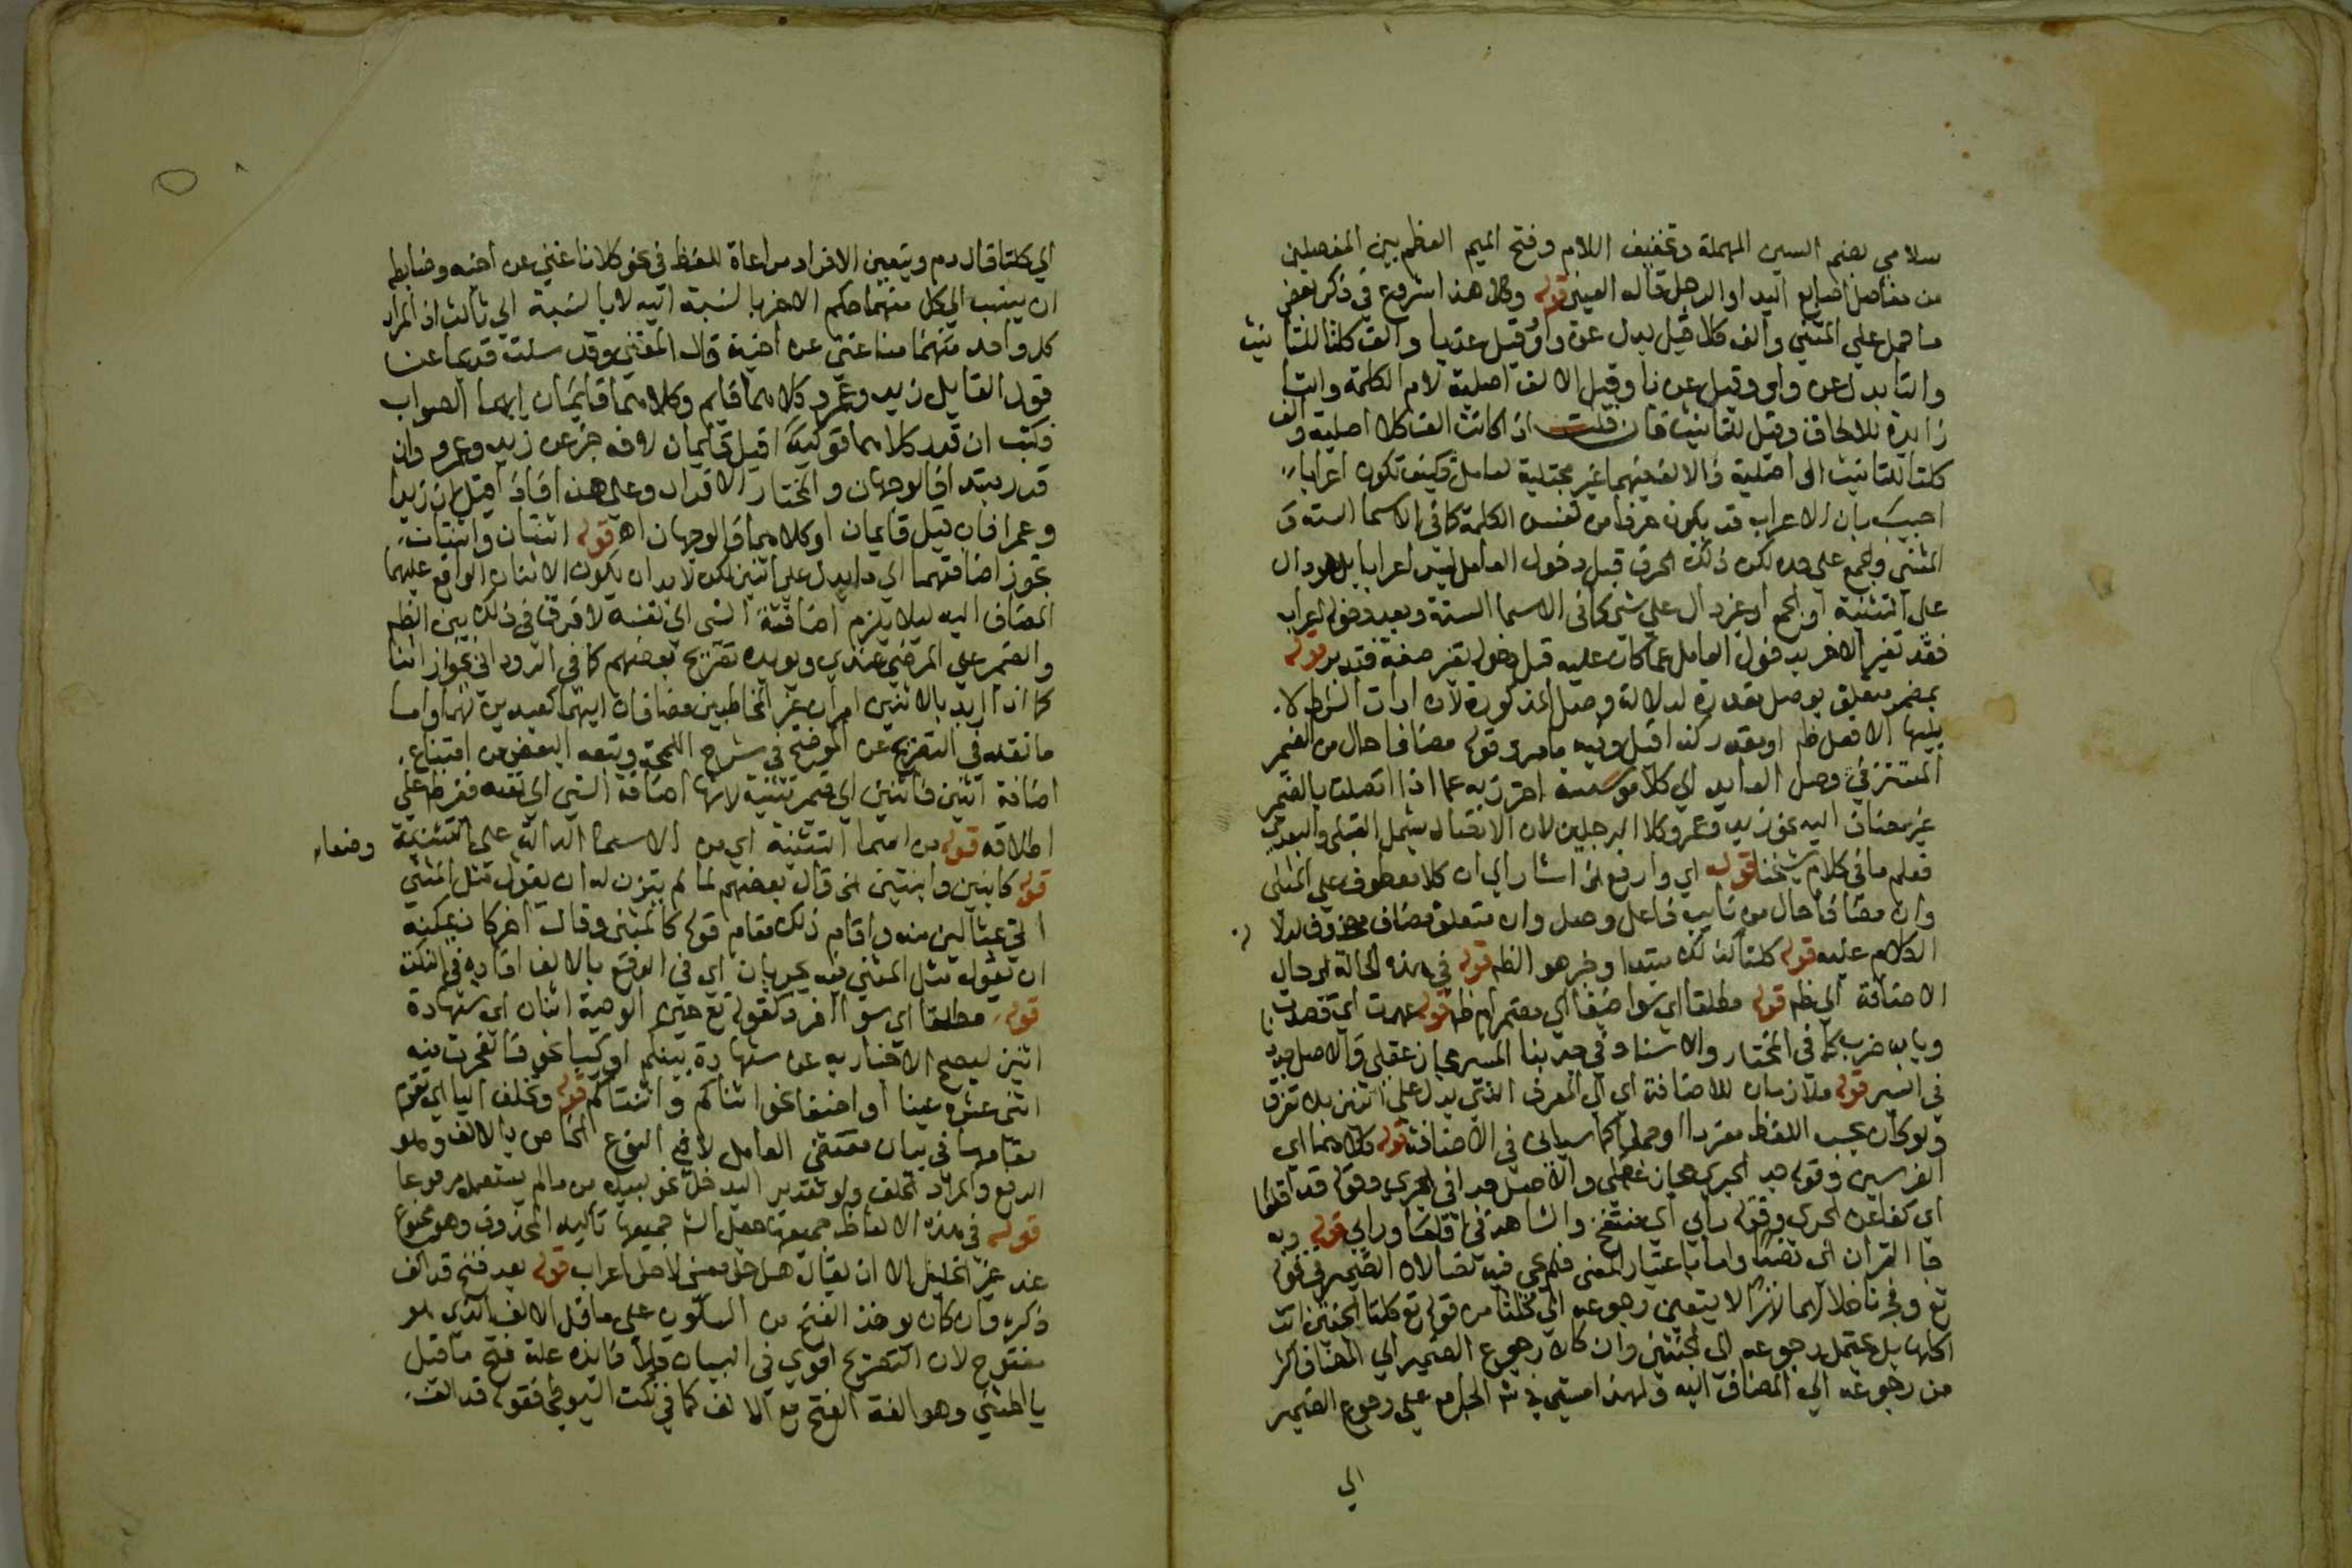 سلامي بضم السين المهملة وتخفيف اللام وفتح الميم العظم بين المفصلين
من مفاصل اصابع اليد او الرجل قاله العيني قوله وكلا هذا شروع في ذكر بعض
ما حمل علي المثني والف كلا قيل بدل عن واو وقيل عن يا والف كلتا للتانيث
والتا بدل عن واو وقيل عن يا وقيل الالف اصلية لام الكلمة والتا
زايدة للالحاق وقيل للتانيث فان قلت اذا كانت الف كلا اصلية والف
كلتا للتانيث او اصلية فالالف فيهما غير مجتلبة لعامل فكيف تكون اعرابا
اجيب بان الاعراب قد يكون حرفا من نفس الكلمة كما في الاسما الستة و
المثني والجمع علي حده لكن ذلك الحرف قبل دخول العامل ليس اعرابا بل هو دال
علي التثنية او الجمع او غير دال علي شي كما في الاسما الستة وبعد دخوله اعراب
فقد تغير الاخر بدخول العامل عما كان عليه قبل دخوله تغير صفة فتدبر قوله
بمضمر متعلق بوصل مقدرة لدلالة وصل المذكورة لان ادات الشرط لا
يليها الا فعل ظاهر او مقدر كذا قيل وفيه ما مر وقوله مضافا حال من الضمير
المستتر في وصل العايد الي كلا احترز به عما اذا اتصلت بالضمير
غير مضاف اليه نحو زيد وعمرو كلا الرجلين لان الاتصال يشمل القبلي والبعدي
فعلم ما في كلام شيخنا قوله اي وارفع الخ اشار الي ان كلا معطوف علي المثني
وان مضافا حال من نايب فاعل وصل وان متعلق مضاف محذوف لدلالة
الكلام عليه قوله كلتا كذلك مبتدا وخبر هو الظم قوله في هذه الحالة اي حال
الاضافة الي ظم قوله مطلقا اي سوا اضيفا الي مضمر ام ظم قوله عمدت اي قصدت
وبابه ضرب كما في المختار والاسناد في جد بنا المسير مجاز عقلي والاصل جد
في السير قوله ملازمان للاضافة اي الي المعرف الذي يدل علي اثنين بلا تفرق
ولو كان بحسب اللفظ مفردا او جملة كما سياتي في الاضافة قوله كلاهما اي
الفرسين وقوله جد الجري مجاز عقلي والاصل جدا في الجري وقوله قد اقلعا
اي كفا عن الجري وقوله رابي اي منتفخ والشاهد في اقلعا ورابي قوله وبه
جا القران اي نصا واما باعتبار المعني فلم يجي فيه نصا لان الضمير في قوله
تع وفجرنا خلالهما نهرا لا يتعين رجوعه الي كلتا من قوله تع كلتا الجنتين اتت
اكلها بل يحتمل رجوعه الي الجنتين وان كان رجوع الضمير الي المضاف اكثر
من رجوعه الي المضاف اليه ولهذا مشي في شرح الجامع علي رجوع الضمير
الي
اي كلتا قال دم ويتعين الافراد مراعاة للفظ في نحو كلانا غني عن اخيه وضابطه
ان ينسب الي كل منهما حكم الاخر بالنسبة اليه لا بالنسبة الي ثالث اذ المراد
كل واحد منهما منا غني عن اخيه قال المغني وقد سيلت قديما عن
قول القايل زيد وعمرو كلاهما قايم وكلاهما قايمان ايهما الصواب
فكتبت ان قدر كلاهما توكيدا قيل قايمان لانه خبر عن زيد وعمرو وان
قدر مبتدا فالوجهان والمختار الافراد وعلي هذا فاذا قيل ان زيدا
وعمرا فان قيل قايمان او كلاهما فالوجهان اه قوله اثنتان واثنتان
يجوز اضافتهما الي ما يدل علي اثنين لكن لا بد ان يكون الاثنان الواقع عليهما
المضاف اليه ليلا يلزم اضافة الشي الي نفسه لا فرق في ذلك بين الظم
والضمير علي المرضي عندي ويويده تصريح بعضهم كما في الروداني بجواز اثنا
كما اذا اريد بالاثنين امران غير المخاطبين مضافان اليهما كعبدين لهما واما
ما نقله في التصريح عن الموضح في شرح اللمحة وتبعه البعض من امتناع
اضافة اثنين واثنتين الي ضمير تثنية لانها اضافة الشي الي نفسه ففرط علي
اطلاقه قوله من اسما التثنية اي من الاسما الدالة علي التثنية وضعا
قوله كابنين وابنتين الخ قال بعضهم لما لم يتزن له ان يقول مثل المثني
اتي بمثالين منه واقام ذلك مقام قوله كالمثني وقال اخر كان يمكنه
ان يقول مثل المثني فيه يجريان اي في الرفع بالالف افاده في النكت
قوله مطلقا اي سوا افردا كقوله تع حين الوصية اثنان اي شهادة
اثنين ليصح الاخبار به عن شهادة بينكم او ركبا نحو فانفجرت منه
اثنتي عشرة عينا او اضيفا نحو اثناكم واثنتاكم قوله وتخلف اليا اي تقوم
مقامها في بيان مقتضي العامل لا في النوع الخاص بالالف وهو
الرفع والمراد تخلف ولو تقديرا ليدخل نحو لبيك من ما لم يستعمل مرفوعا
قوله في هذه الالفاظ جميعها جعل الشم جميعها تاكيد المحذوف وهو ممنوع
عند غير الخليل الا ان يقال هل حل معني لا حل اعراب قوله بعد فتح قد الف
ذكره وان كان يوخذ الفتح من السكون علي ما قبل الالف الذي هو
مفتوح لان التصريح اقوي في البيان وايضا فايدته علة فتح ما قبل
يا المثني وهو الفة الفتح مع الالف كما في نكت السيوطي فقوله قد الف